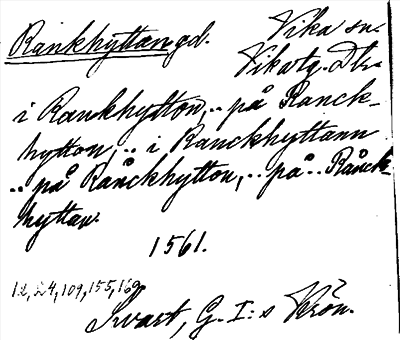 Rankhyttan gd. Vika sn.
Vika tg. Dl.
i Ranckhytton, .. på Ranck-
hytton, .. i Ranckhyttann
.. på Rånckhytton, .. på .. Rånck-
hyttan.
1561.
12, 24, 109, 155, 169
Svart, G. I:s Krön.